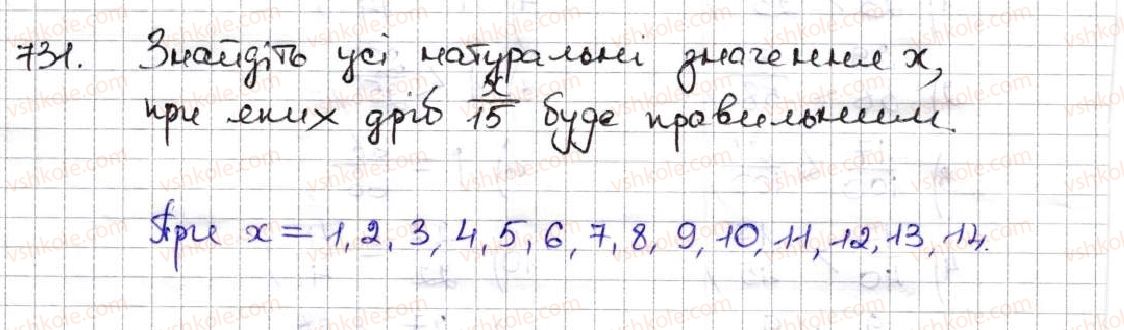 731. Знайдіть усі натуральні значення x,
при яких дріб x/15 буде правильним.
При x = 1, 2, 3, 4, 5, 6, 7, 8, 9, 10, 11, 12, 13, 14.